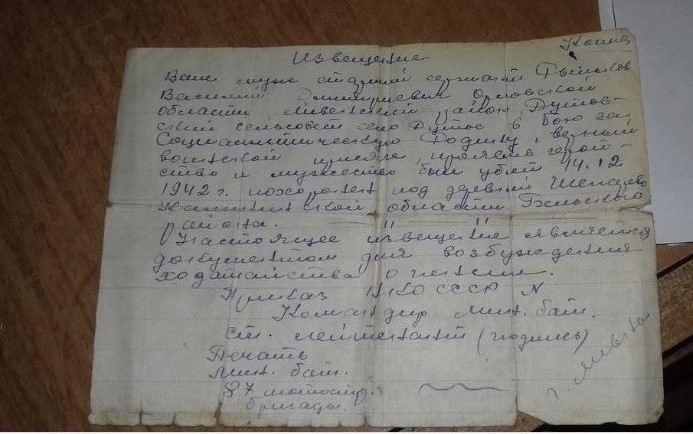 Копия
Извещение
Ваш муж старший сержант
Василий Дмитриевич Орловской
области, Ливенский район, Дутов-
ский сельсовет село Дутое в бою за
Социалистическую Родину, верный
воинской присяге, проявив герой-
ство и мужество был убит 14.12
1942 г. похоронен под деревней
Калининской области Бельского
района.
Настоящее извещение является
документом для возбуждения
ходатайства о пенсии.
Приказ НКО СССР N
Командир мин. бат.
ст. лейтенант (подпись)
Печать
мин. бат.
87 мотостр.
бригады.
г Ливны